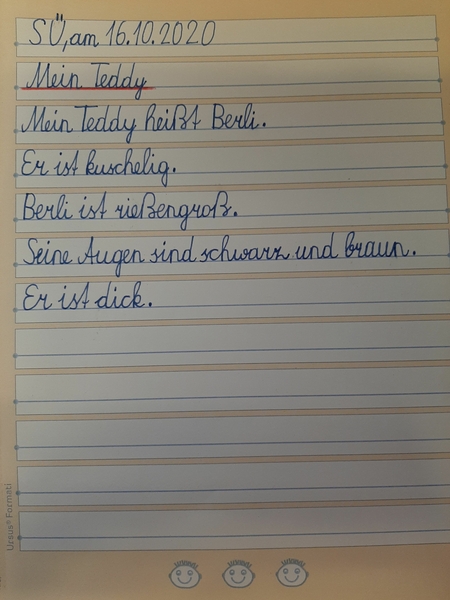 SÜ, am 16.10.2020
Mein Teddy
Mein Teddy heißt Berli.
Er ist kuschelig.
Berli ist rießengroß.
Seine Augen sind schwarz und braun.
Er ist dick.
Ursus® Formati